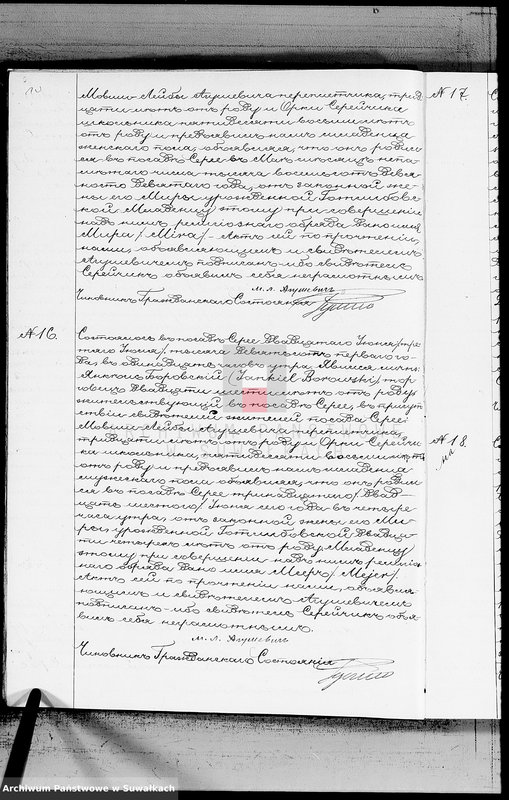 Мовши-Лейбы Ятушевича переплетчика, трид
цати лѣтъ отъ роду и Орки Серейчика
школьника пятидесяти восьми лѣтъ
отъ роду и предъявилъ намъ младенца
женскаго пола, объявляя, что онъ родил
ся въ посадѣ Серее въ
числа тысяча восемьсотъ девя
носто девятаго года, отъ законной же
ны его Миры урожденной Готлибов
ской Младенцу этому при совершеніи
надъ нимъ религіознаго обряда дано имя
Мира /Mira/.- Актъ сей по прочтеніи,
нами, объявляющимъ и свидѣтелемъ
подписанъ ибо свидѣтель
Серейчикъ объявилъ себя неграмотнымъ.
М. Л.
Чиновникъ Гражданскаго Состоянія
№ 17.
№ 16.
Состоялось въ посадѣ Серее двадцатаго Іюня /тре
тьяго Іюля/ тысяча девятьсотъ перваго го
да, въ одинадцать часовъ утра. Явился лично
Янкель Боровскій /Jankiel Borowski/ тор
говецъ двадцати шести лѣтъ отъ роду
жительствующій въ посадѣ Серее, въ присут
ствіи свидѣтелей жителей посада Серее
Мовши-Лейбы переплетчика,
тридцати лѣтъ отъ роду и Орки Серейчи
ка школьника, пятидесяти восьми лѣтъ
отъ роду и предъявилъ намъ младенца
мужескаго пола объявляя, что онъ родил
ся въ посадѣ Серее тринадцатаго /двад
цать шестого/ Іюня сего года въ четыре
часа утра, отъ законной жены его Ми
ры, урожденной Готлибовской двадца
ти четырехъ лѣтъ отъ роду. Младенцу
этому при совершеніи надъ нимъ религіоз
наго обряда дано имя Мееръ /Mejer/.
Актъ сей по прочтеніи нами, объявля
ющимъ и свидѣтелемъ
подписанъ ибо свидѣтель Серейчикъ объя
вилъ себя неграмотнымъ.
М. Л.
Чиновникъ Гражданскаго Состоянія
№ 18
Archiwum Państwowe w Suwałkach